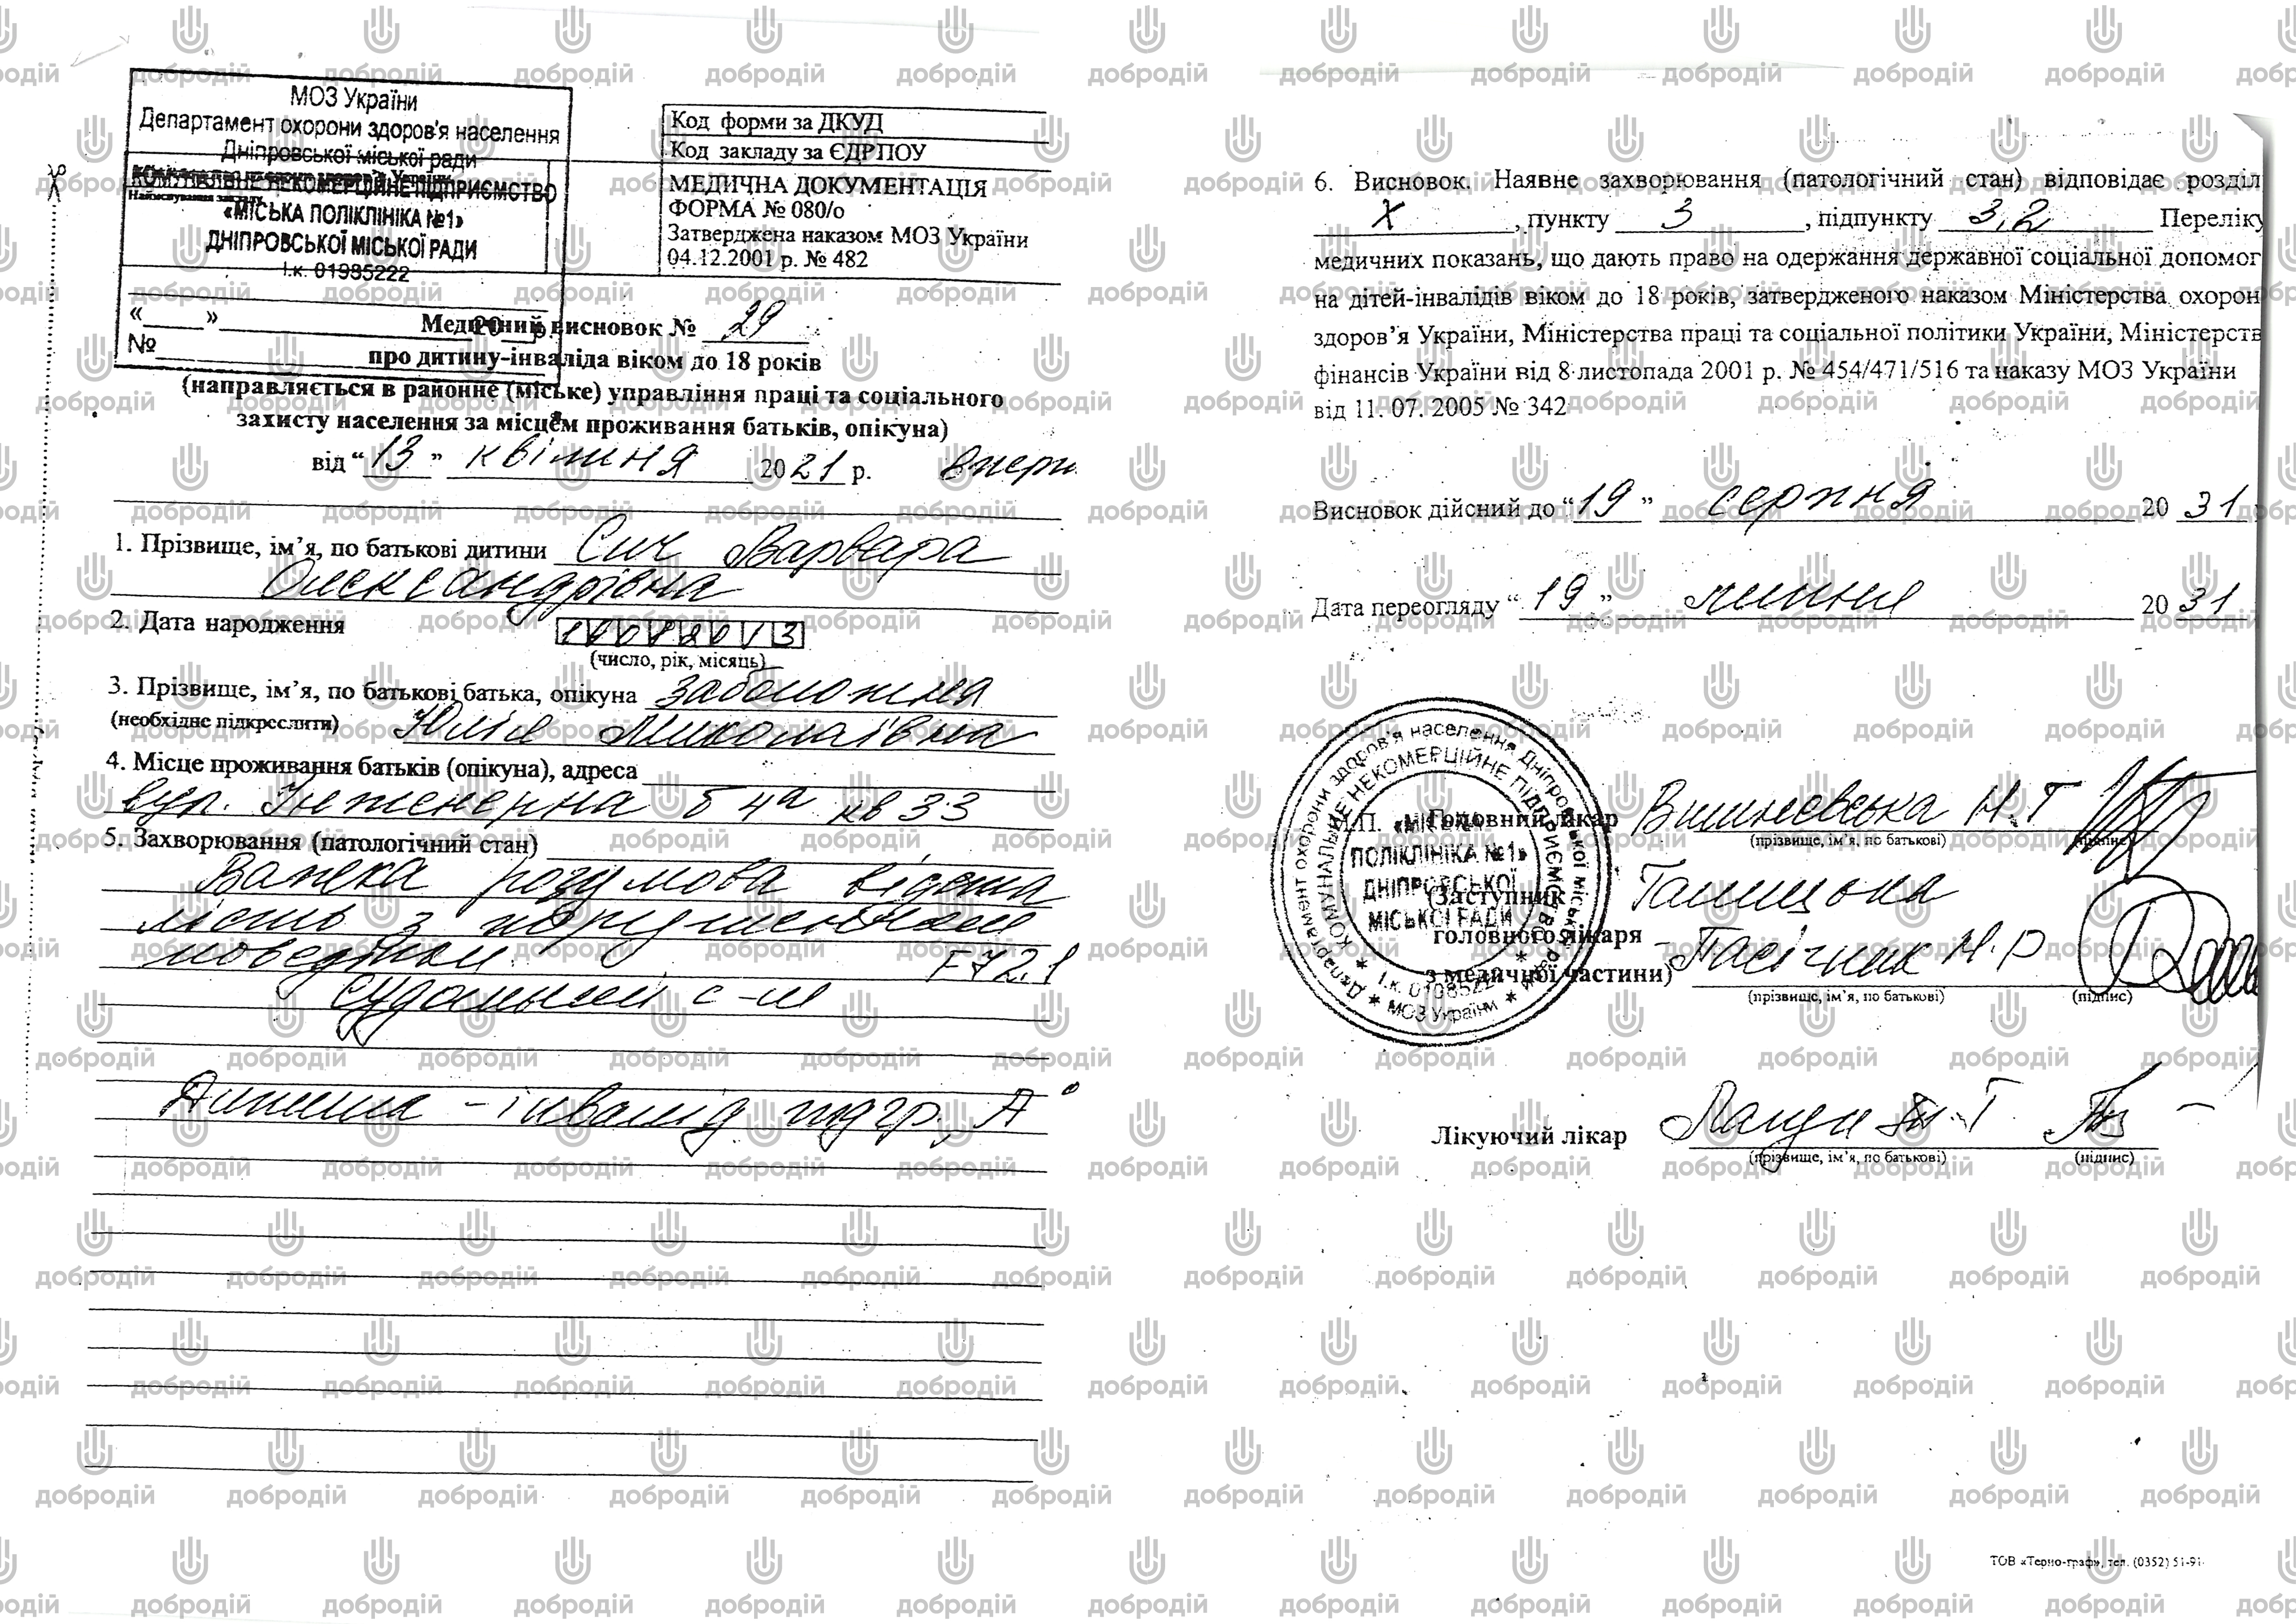 МОЗ України
Департамент охорони здоров'я населення
Дніпровської міської ради
КОМУНАЛЬНЕ НЕКОМЕРЦІЙНЕ ПІДПРИЄМСТВО
Найменування закладу
«МІСЬКА ПОЛІКЛІНІКА №1»
ДНІПРОВСЬКОЇ МІСЬКОЇ РАДИ
І.к. 01985222
«____»____________ 20__р.
№
Код форми за ДКУД
Код закладу за ЄДРПОУ
МЕДИЧНА ДОКУМЕНТАЦІЯ
ФОРМА № 080/о
Затверджена наказом МОЗ України
04.12.2001 р. № 482
Медичний висновок № 29
про дитину-інваліда віком до 18 років
(направляється в районне (міське) управління праці та соціального
захисту населення за місцем проживання батьків, опікуна)
від “13” квітня 2021 р. вперш
1. Прізвище, ім’я, по батькові дитини Сич Варвара
Олександрівна
2. Дата народження 19082013
(число, рік, місяць)
3. Прізвище, ім’я, по батькові батька, опікуна Заболотня
(необхідне підкреслити) Юлія Миколаївна
4. Місце проживання батьків (опікуна), адреса
вул. Інженерна б 4а кв 33
5. Захворювання (патологічний стан)
Важка розумова відста
лість з порушенням
поведінки. F72.1
Судомний с-м
Дитина - інвалід підгр. „А"
6. Висновок. Наявне захворювання (патологічний стан) відповідає розділ
X, пункту 3, підпункту 3.2 Переліку
медичних показань, що дають право на одержання державної соціальної допомог
на дітей-інвалідів віком до 18 років, затвердженого наказом Міністерства охорон
здоров’я України, Міністерства праці та соціальної політики України, Міністерств
фінансів України від 8 листопада 2001 р. № 454/471/516 та наказу МОЗ України
від 11. 07. 2005 № 342
Висновок дійсний до “19” серпня 2031
Дата переогляду “19” липня 2031
М.П. Головний лікар Вишневська Н.Т
(прізвище, ім’я, по батькові) (підпис)
(Заступник
головного лікаря - Пасічник Н.Р
з медичної частини)
(прізвище, ім’я, по батькові) (підпис)
Департамент охорони здоров'я населення Дніпровської міської ради
МОЗ України
КОМУНАЛЬНЕ НЕКОМЕРЦІЙНЕ ПІДПРИЄМСТВО
«МІСЬКА
ПОЛІКЛІНІКА №1»
ДНІПРОВСЬКОЇ
МІСЬКОЇ РАДИ
Лікуючий лікар
(прізвище, ім’я, по батькові) (підпис)
ТОВ «Терно-граф», тел. (0352) 51-91
добродій